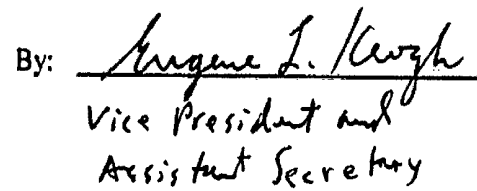 By: Eugene L. Keogh
Vice President and
Assistant Secretary